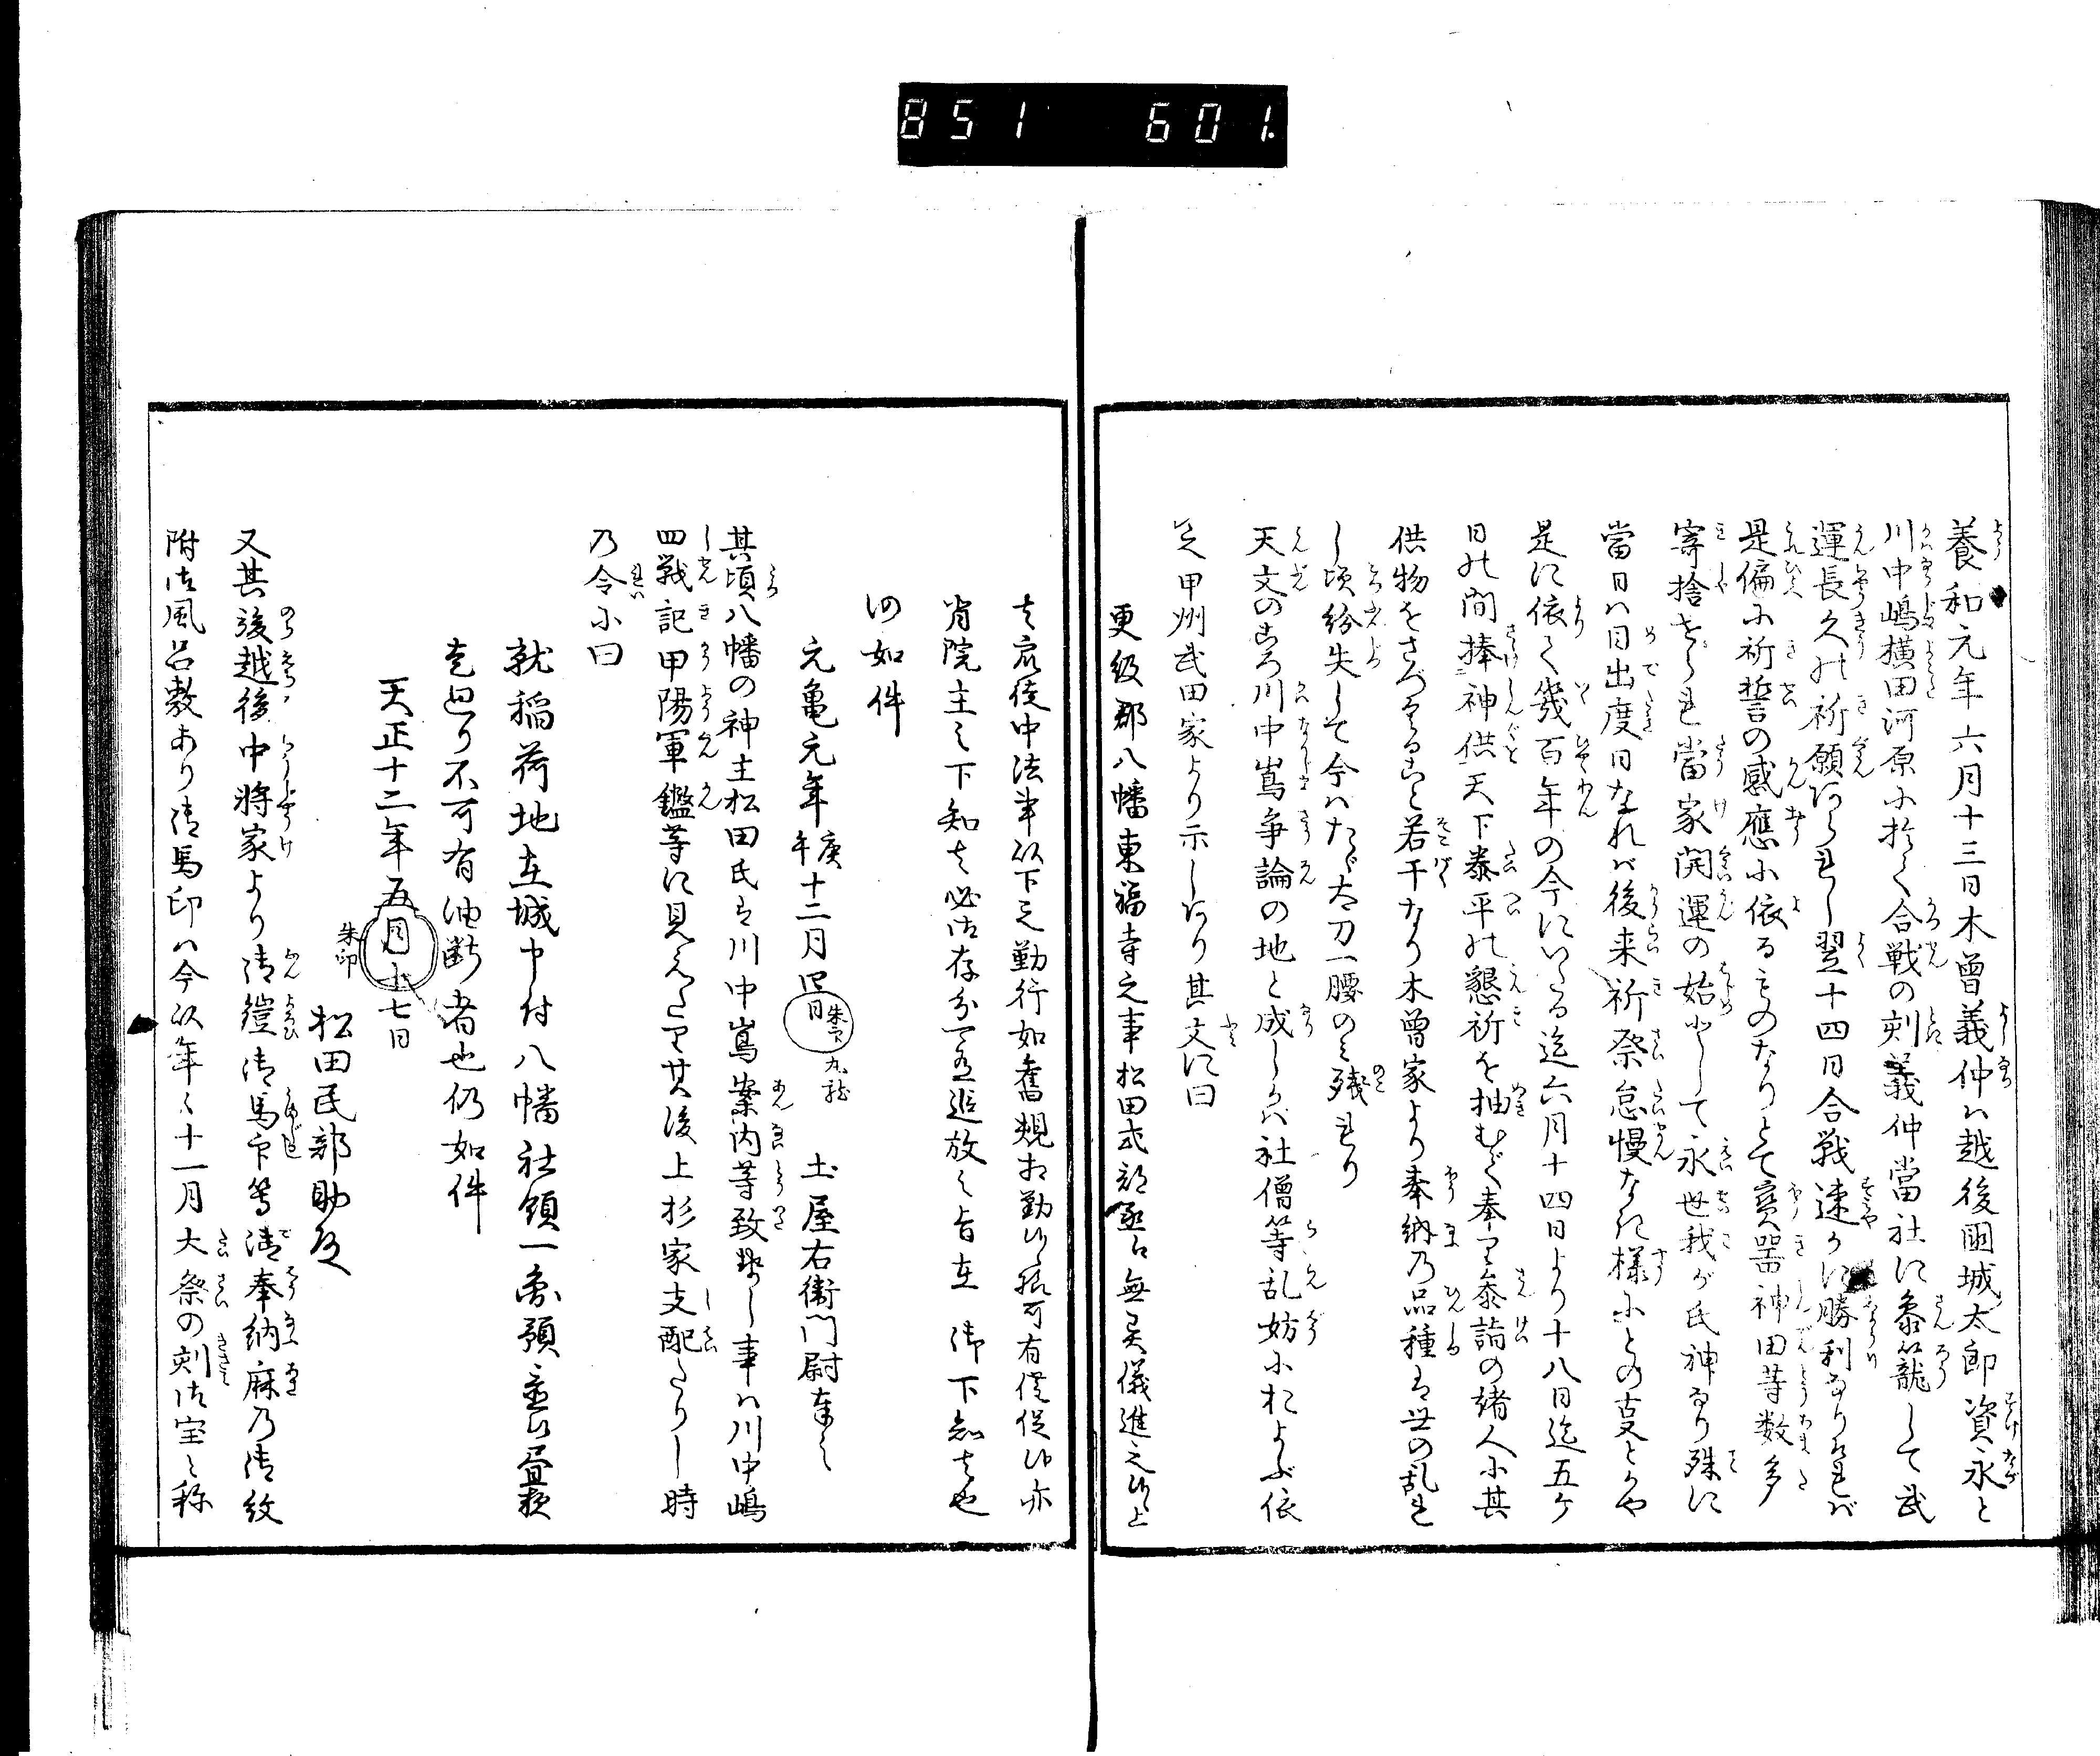 851 601.
養和元年六月十三日木曽義仲ハ越後國城太郎資永と
川中嶋横田河原小於く合戦の刻義仲當社に参籠して武
運長久の祈願ありし翌十四日合戦速かに勝利ありけれバ
是偏小祈誓の感應小依るものなりとて寳器神田等数多
寄捨せられ當家開運の始めとして永世我が氏神なり殊に
當日ハ目出度日なれバ後来祈祭怠慢なき様小との支とかや
是に依く幾百年の今にいたる迄六月十四日より十八日迄五ケ
日の間捧神供天下泰平の懇祈を抽むで奉り参詣の諸人小其
供物をさづること若干なり木曽家より奉納乃品種は世の乱れ
し頃紛失して今ハたゞ太刀一腰のミ残れり
天文のころ川中嶌争論の地と成しかバ社僧等乱妨小およぶ依
之甲州武田家より示しあり其文に曰
更級郡八幡東福寺之事松田式部丞ニ無異儀進之候上
者衆徒中法事以下之勤行如舊規相勤候様可有催促候亦
背院主之下知者必御存分可追放之旨在御下知者也
仍如件
元亀元年庚午十二月四日 朱印 土屋右衛門尉奉之
其頃八幡の神主松田氏は川中嶌案内等致せし事ハ川中嶋
四戦記甲陽軍鑑等に見えたり其後上杉家支配たりし時
乃令小曰
就稲荷地在城申付八幡社領一圓預置候昼夜
無油断者也仍如件
天正十二年五月十七日
朱印 松田民部助殿
又其後越後中将家より御鎧御馬印等御奉納麻乃御紋
附御風呂敷あり御馬印ハ今以年々十一月大祭の刻御宝と称